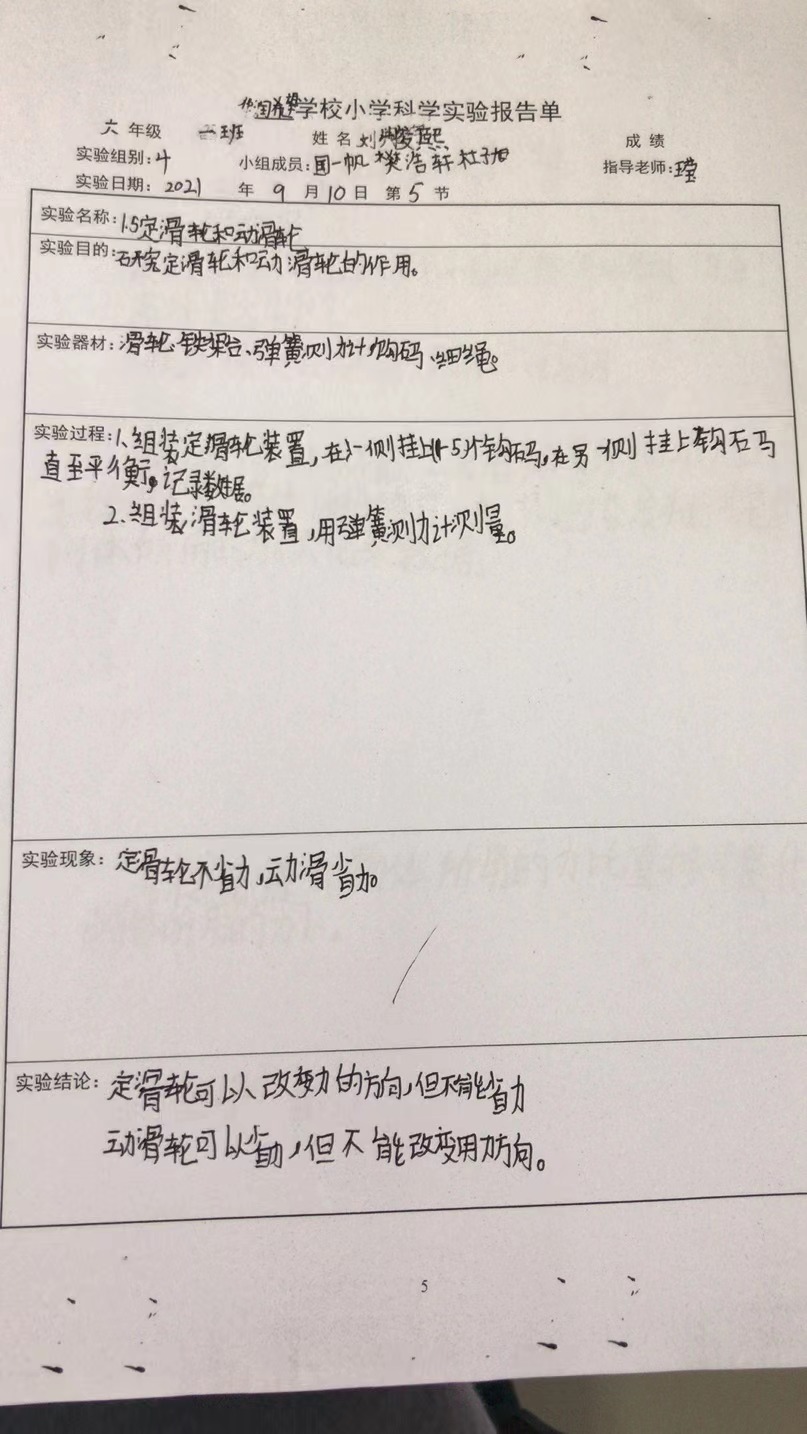 学校小学科学实验报告单
六 年级 一班 姓 名 刘 熙 成 绩
实验组别:4 小组成员:国一帆 樊浩轩 杜子旭 指导老师:
实验日期: 2021 年 9 月 10 日 第 5 节
实验名称:1.5定滑轮和动滑轮
实验目的:研究定滑轮和动滑轮的作用。
实验器材:滑轮、铁架台、弹簧测力计、钩码、细绳。
实验过程:1、组装定滑轮装置,在一侧挂上(1-5)个钩码,在另一侧挂上钩码
直至平衡,记录数据。
2、组装滑轮装置,用弹簧测力计测量。
实验现象:定滑轮不省力,动滑省力。
实验结论:定滑轮可以改变力的方向,但不能省力
动滑轮可以省力,但不能改变用力方向。
5